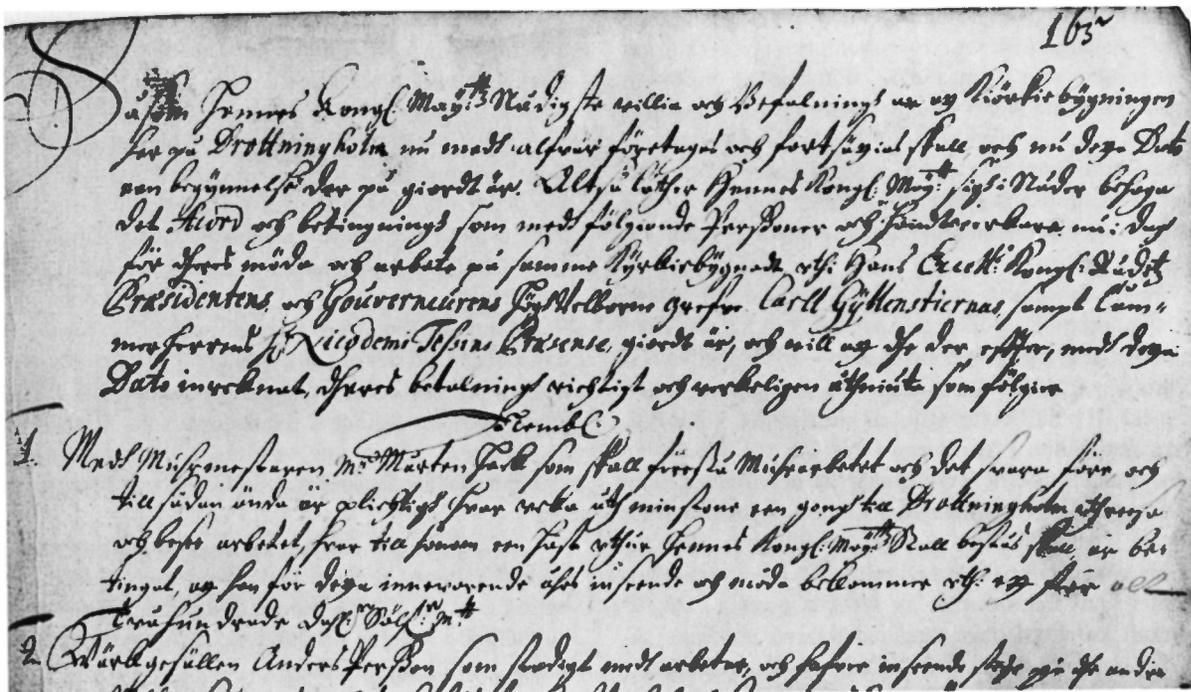 163
Såsom Hennes Kongl: May:ttz Nådigste villia och Befalningh är at Kiörkiebygningen
her på Drottningholm nu medh alfvar företagas och fortsättias skall, och nu deᵹa Dato
een begynnelse der på giordt är. Altså låther Hennes Kongl: May:tt sigh i Nåder behaga
det Acord och betingningh som medh fölgiande Perssoner och Handtwerkare nu i dag
för theres möda och arbete på samme Kyrkiebygnadt, uthi Hans Excell: Kongl: Rådetz
Præsidentens, och Gouverneurens Högh Welborn Grefve Carll Gyllenstiernas, sampt Cam-
merherrens H:r Nicodemi Tessins Præsence, giordt är, och will at the der effter, medh deᵹa
Dato inreknat, theres betalningh richtigt och verkeligen åthniuta som fölgier
Nembl:
1. Medh Muhrmestaren M:r Mårten Hack som skall förestå Muhrarbetet och det svara före och
till sådan ända är plichtigh hvar veka åth minstone een gong till Drottningholm uthreesa
och besee arbetet, hvar till honom een häst uthur Hennes Kongl: May:ttz Stall bestås skall, är be-
tingat, at han för deᵹa innevarande åhrs inseende och möda bekommer
Tvåhundrade dahl:r Sölf:r M:tt
2. Wärkgesällen Anders Persson som stadigt medh arbetar, och hafver inseende på the andra